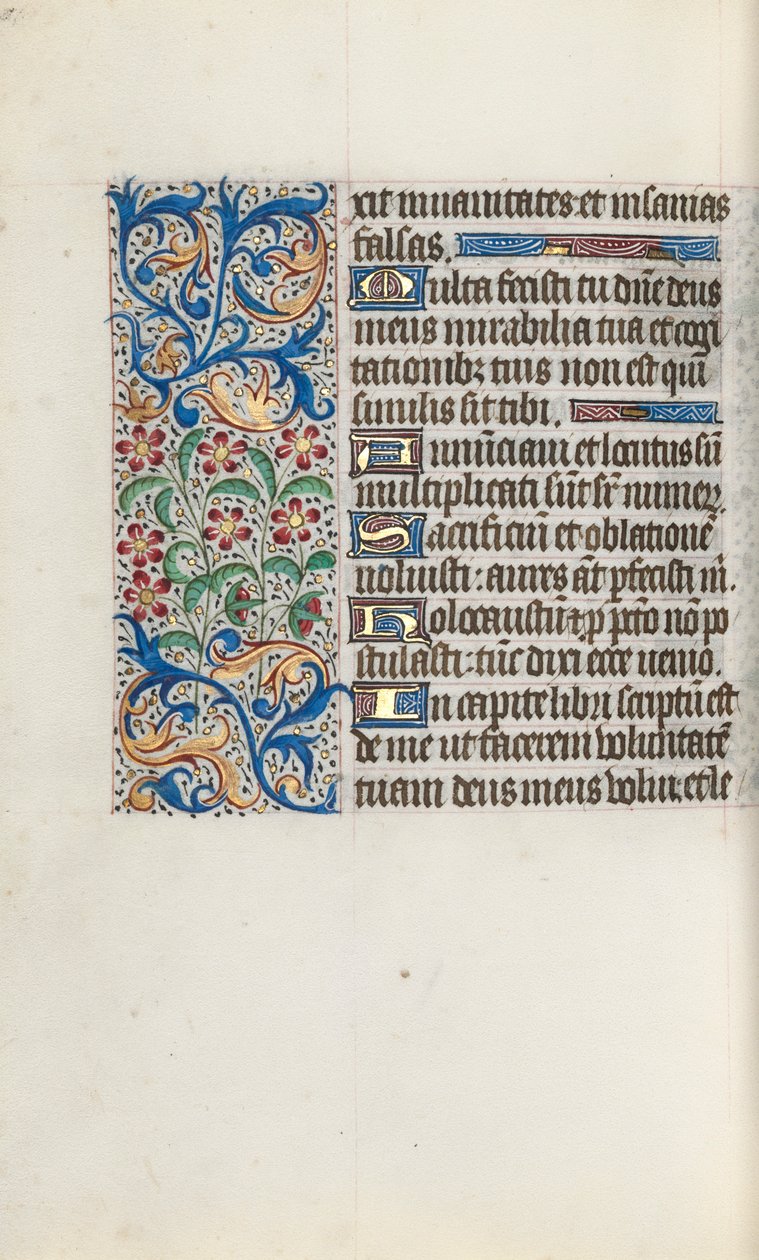 xit in uanitates et insanias
falsas.
Multa fecisti tu dñe deus
meus mirabilia tua et cogi
tationibꝫ tuis non est qui
similis sit tibi.
Annũciaui et locutus sũ
multiplicati sũt sr̃ numeꝝ.
Sacrificiũ et oblationẽ
noluisti: aures ãt ꝑfecisti m̃.
Holocaustũ ⁊ ꝓ pctõ nõ po
stulasti: tũc dixi ecce uenio.
In capite libri scriptũ est
de me ut facerem volũtatẽ
tuam deus meus volui: et le